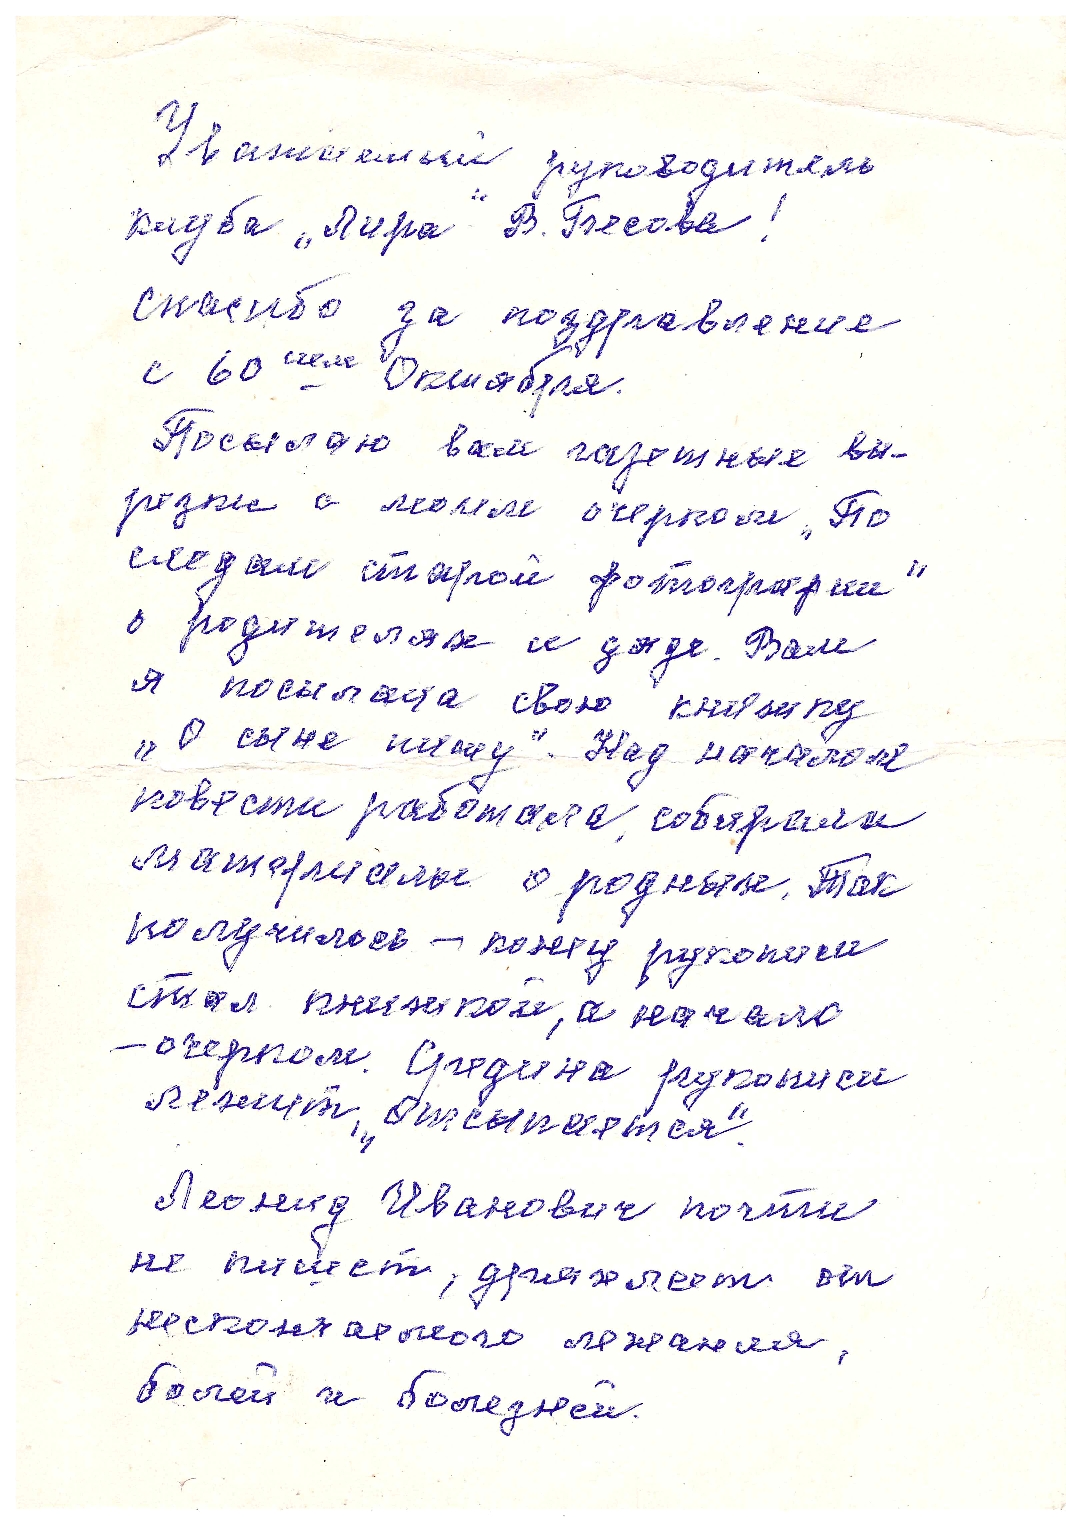 Уважаемый руководитель
клуба „Лира" В. Бесова!
Спасибо за поздравление
с 60 тем Октября.
Посылаю вам газетные вы-
резки с моим очерком „По
следам старой фотографии"
о родителях и дяде. Вам
я посылала свою книжку
„О сыне пишу". Над началом
повести работала, собирали
материалы о родных. Так
получилось — конец рукописи
стал книжкой, а начало
— очерком. Средина рукописи
лежит, „отсыпается".
Леонид Иванович почти
не пишет, дряхлеет от
нескончаемого лежания,
болей и болезней.